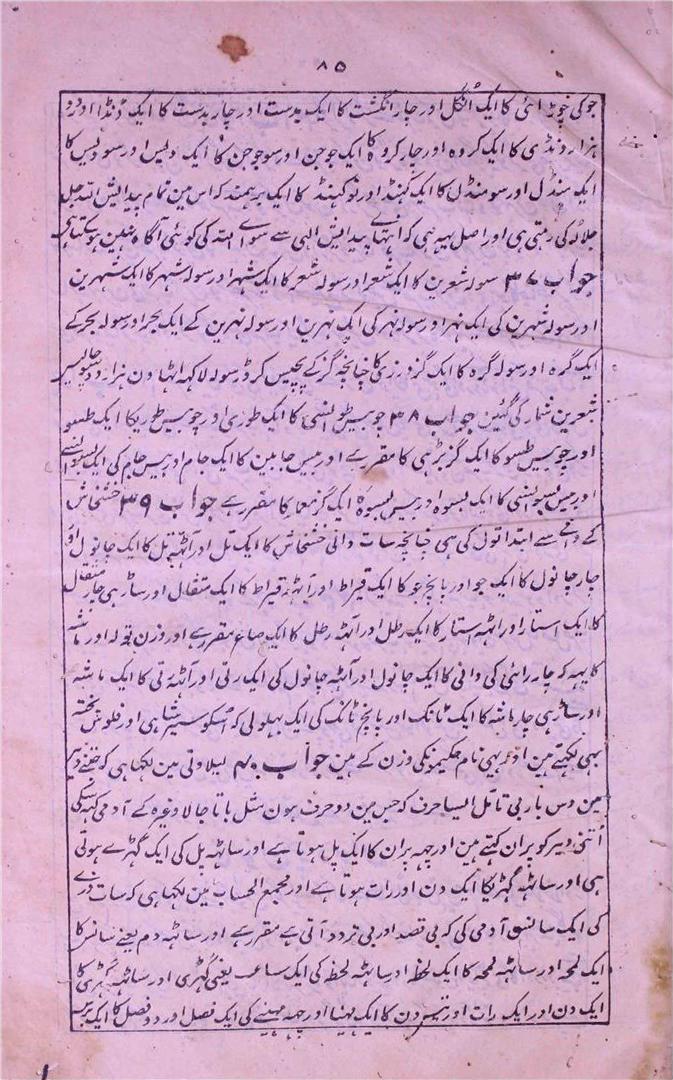 ۸۵
جو کی چوڑائی کا ایک اُنگل اور چار انگشت کا ایک بدست اور چار بدست کا ایک ڈنڈا اور دو
ہزار ڈنڈی کا ایک کروہ اور چار کروہ کا ایک جوجن اور سو جوجن کا ایک دیس اور سو دیس کا
ایک منڈل اور سو منڈل کا ایک کہنڈ اور نو کہنڈ کا ایک برہمنڈ کہ اس مین تمام پیدایش اللہ جل
جلالہ کی رہتی ہی اور اصل یہہ ہی کہ انتہاے پیدایش الہی سے سواے اللہ کی کوئی آگاہ نہین ہو سکتا ہی
جواب ۳۷ سولہ شعرین کا ایک شعر اور سولہ شعر کا ایک شہر اور سولہ شہر کا ایک شہرین
اور سولہ شہرین کی ایک نہر اور سولہ نہر کی ایک نہرین اور سولہ نہرین کے ایک بحر اور سولہ بحر کے
ایک گرہ اور سولہ گرہ کا ایک گز درزی کا چنانچہ گز کے پچیس کرڈر سولہ لاکہہ اٹہاون ہزار دو
شعرین شمار کی گئین جواب ۳۸ چوبیس طوالنسی کا ایک طوری اور چوبیس طوریکا ایک طسو
اور چوبیس طسو کا ایک گز بڑہی کا مقرر ہے اور بیس جامین کا ایک جام اور بیس جام کی ایک
اور بیس بسوانسی کا ایک بسوہ اور بیس بسوہ کا ایک گز معمار کا مقرر ہے جواب ۳۹ خشخاش
کے دانے سے ابتدا تول کی ہی چنانچہ سات دانی خشخاش کا ایک تل اور آٹہہ تل کا ایک چانول اور
چار چانول کا ایک جو اور پانچ جو کا ایک قیراط اور آٹہہ قیراط کا ایک مثقال اور ساڑہی چار مثقال
کا ایک استار اور اٹہہ استار کا ایک رطل اور آٹہہ رطل کا ایک صاع مقرر ہے اور وزن تولہ اور ماشہ
کا یہہ کہ چار رائی کی دانی کا ایک چانول اور آٹہہ چانول کی ایک رتی اور آٹہہ رتی کا ایک ماشہ
اور ساڑہی چار ماشہ کا ایک ٹانک اور پانچ ٹانک کی ایک بہلولی کہ اسکو سیر شاہی اور فلوس پختہ
بہی لکہتے ہین اور یہی نام حکیمونکی وزن کے ہین جواب ۴۰ لیلاوتی مین لکہا ہی کہ جتنے دیر
مین دس بار بی تامل ایسا حرف کہ جس مین دو حرف ہون مثل باتا جالا وغیرہ کے آدمی کہہ سکی
اُتنی دیر کو پران کہتے ہین اور چہہ پران کا ایک پل ہوتا ہے اور ساٹہہ پل کی ایک گہڑے ہوتی
ہی اور ساٹہہ گہڑیکا ایک دن اور رات ہوتا ہے اور مجمع الحساب مین لکہا ہی کہ سات ذرے
کی ایک سانس آدمی کی کہ بی قصد اور بی تردد آتی ہے مقرر ہے اور ساٹہہ دم یعنے سانس کا
ایک لمحہ اور ساٹہہ لمحہ کا ایک لحظہ اور ساٹہہ لحظہ کی ایک ساعت یعنی گہڑی اور ساٹہہ گہڑی کا
ایک دن اور ایک رات اور تیس دن کا ایک مہینا اور چہہ مہینے کی ایک فصل اور دو فصل کا ایک برس